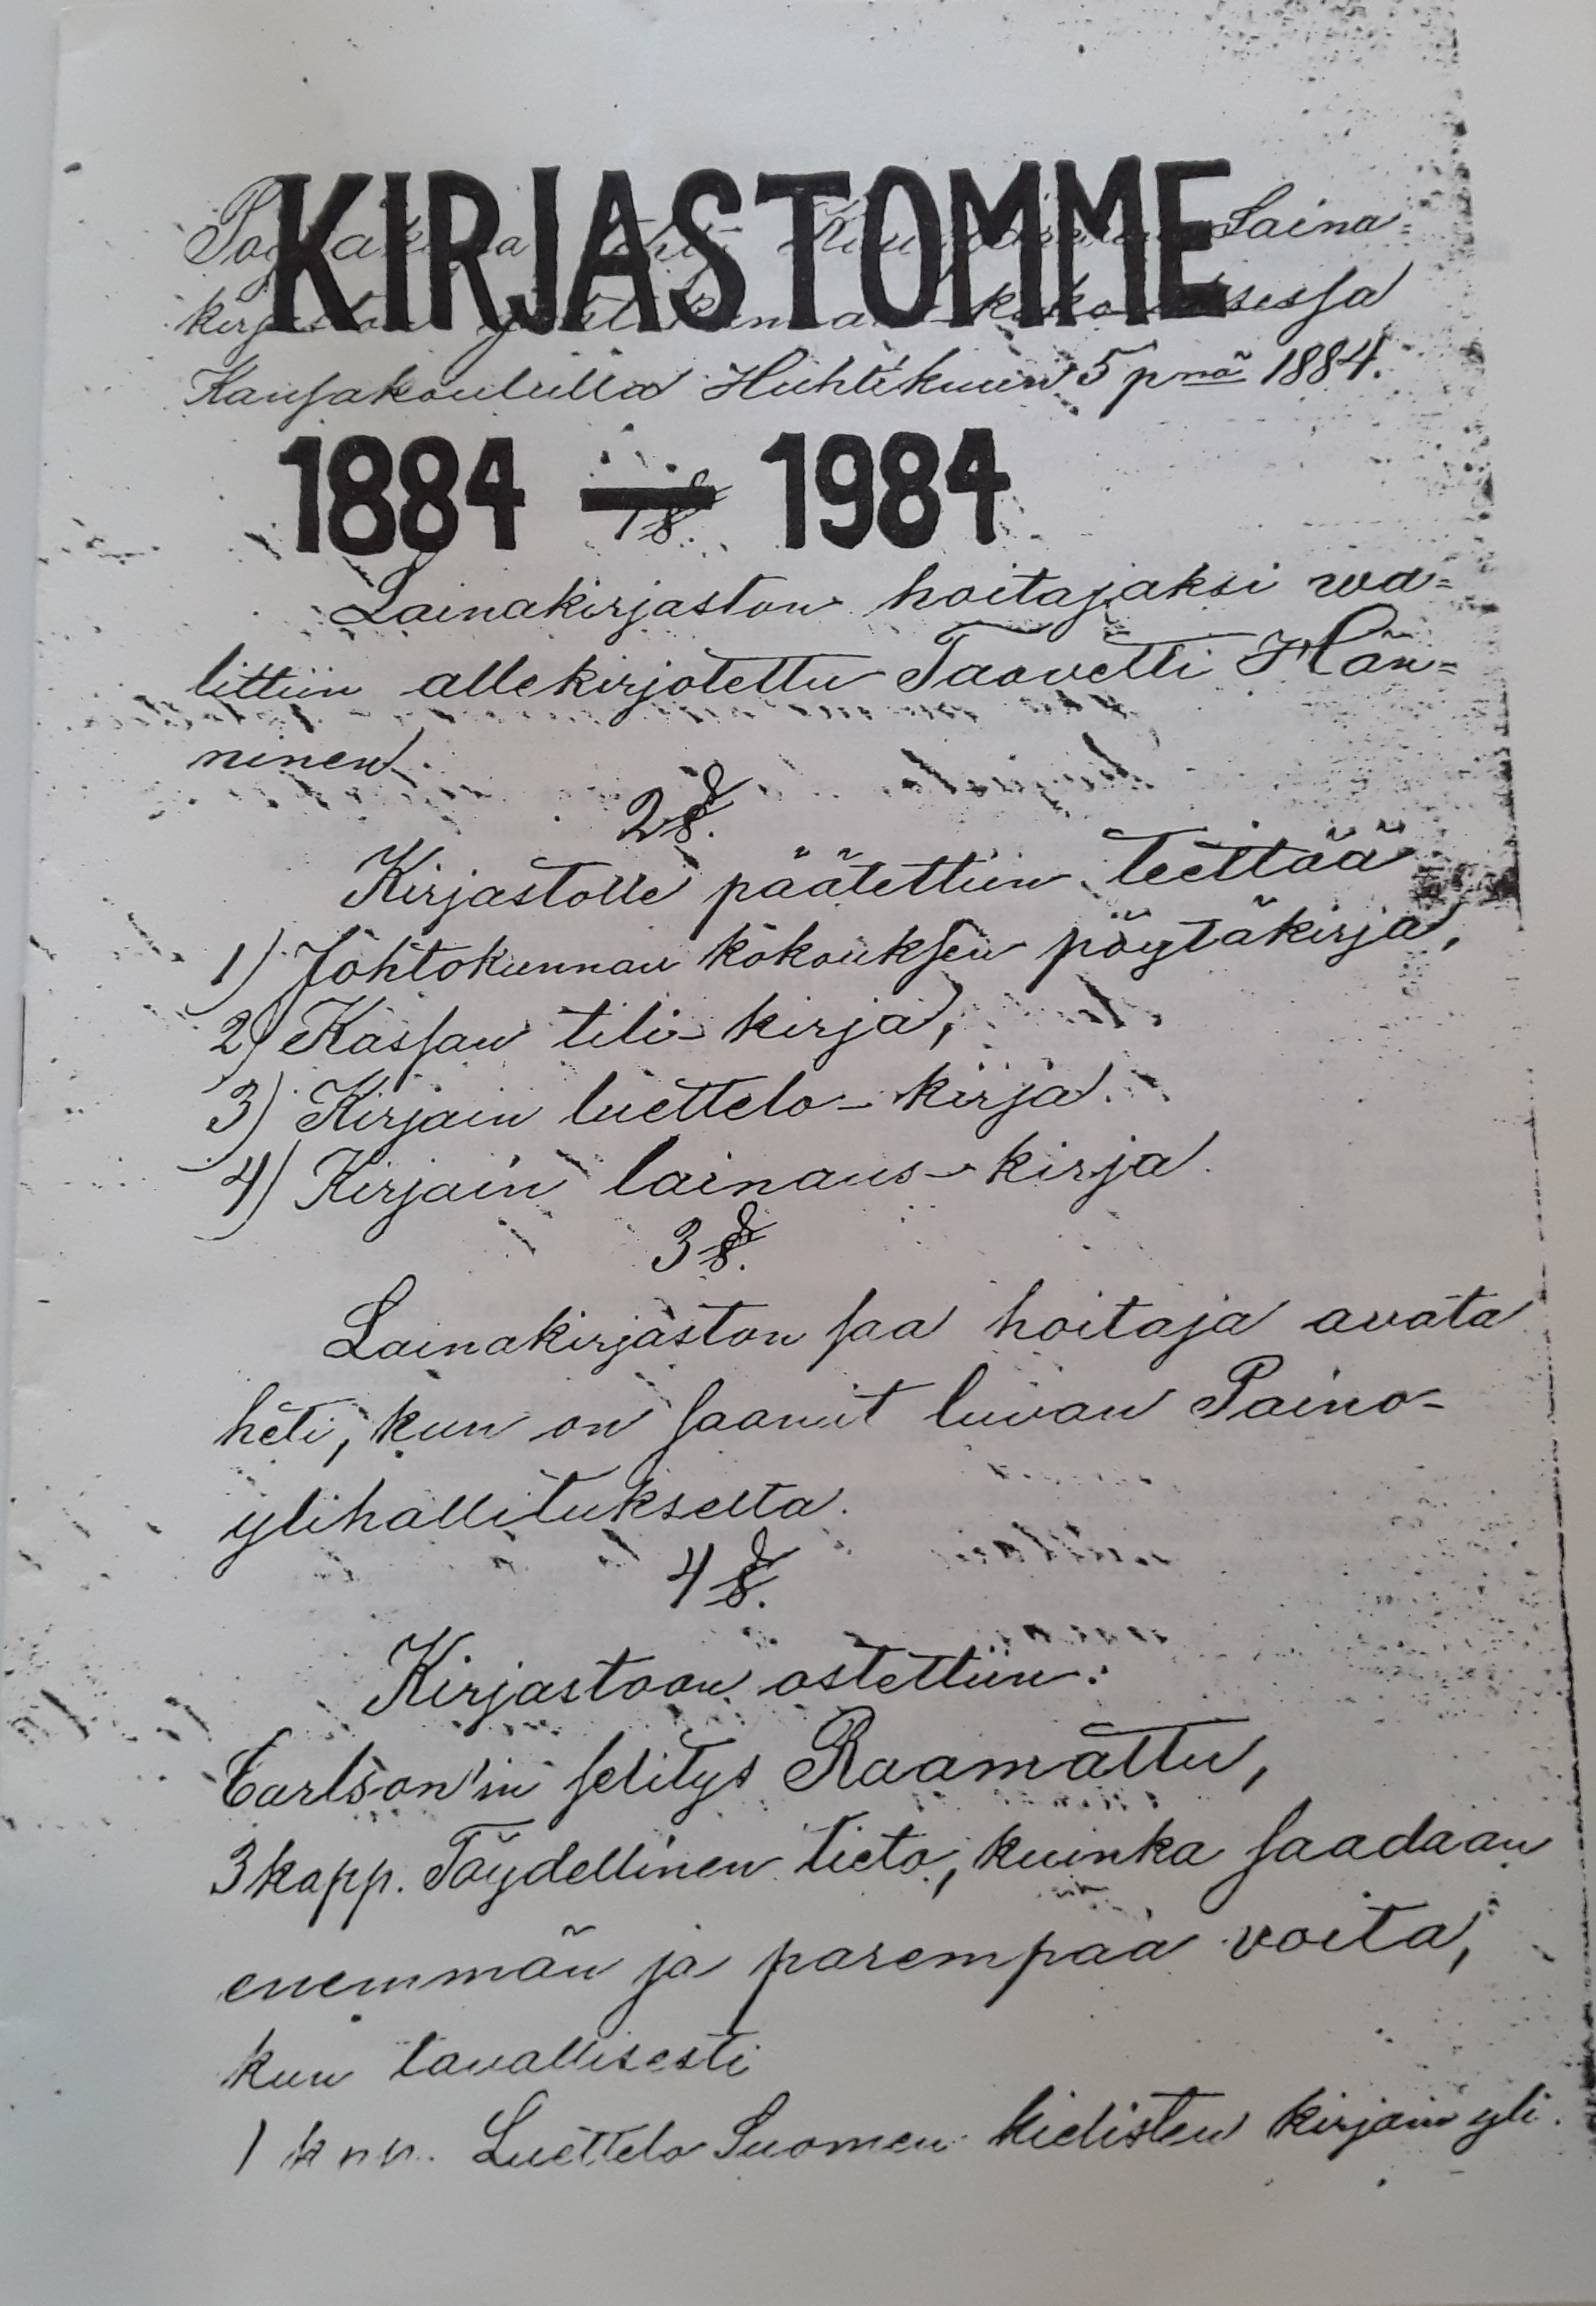 KIRJASTOMME
Laina=
Kansakoululla Huhtikuun 5 pnä 1884.
1884 — 1984
1 §.
Lainakirjaston hoitajaksi wa=
littiin allekirjotettu Taavetti Hän=
ninen.
2 §.
Kirjastolle päätettiin teettää
1) Johtokunnan kokouksen pöytäkirja,
2) Kassan tili-kirja,
3) Kirjain luettelo-kirja.
4) Kirjain lainaus-kirja.
3 §.
Lainakirjaston saa hoitaja avata
heti, kun on saanut luvan Paino-
ylihallitukselta.
4 §.
Kirjastoon ostettiin:
Carlson'in selitys Raamattu,
3 kapp. Täydellinen tieto, kuinka saadaan
enemmän ja parempaa voita,
kun tavallisesti
1 Luettelo Suomen kielisten kirjain yli.